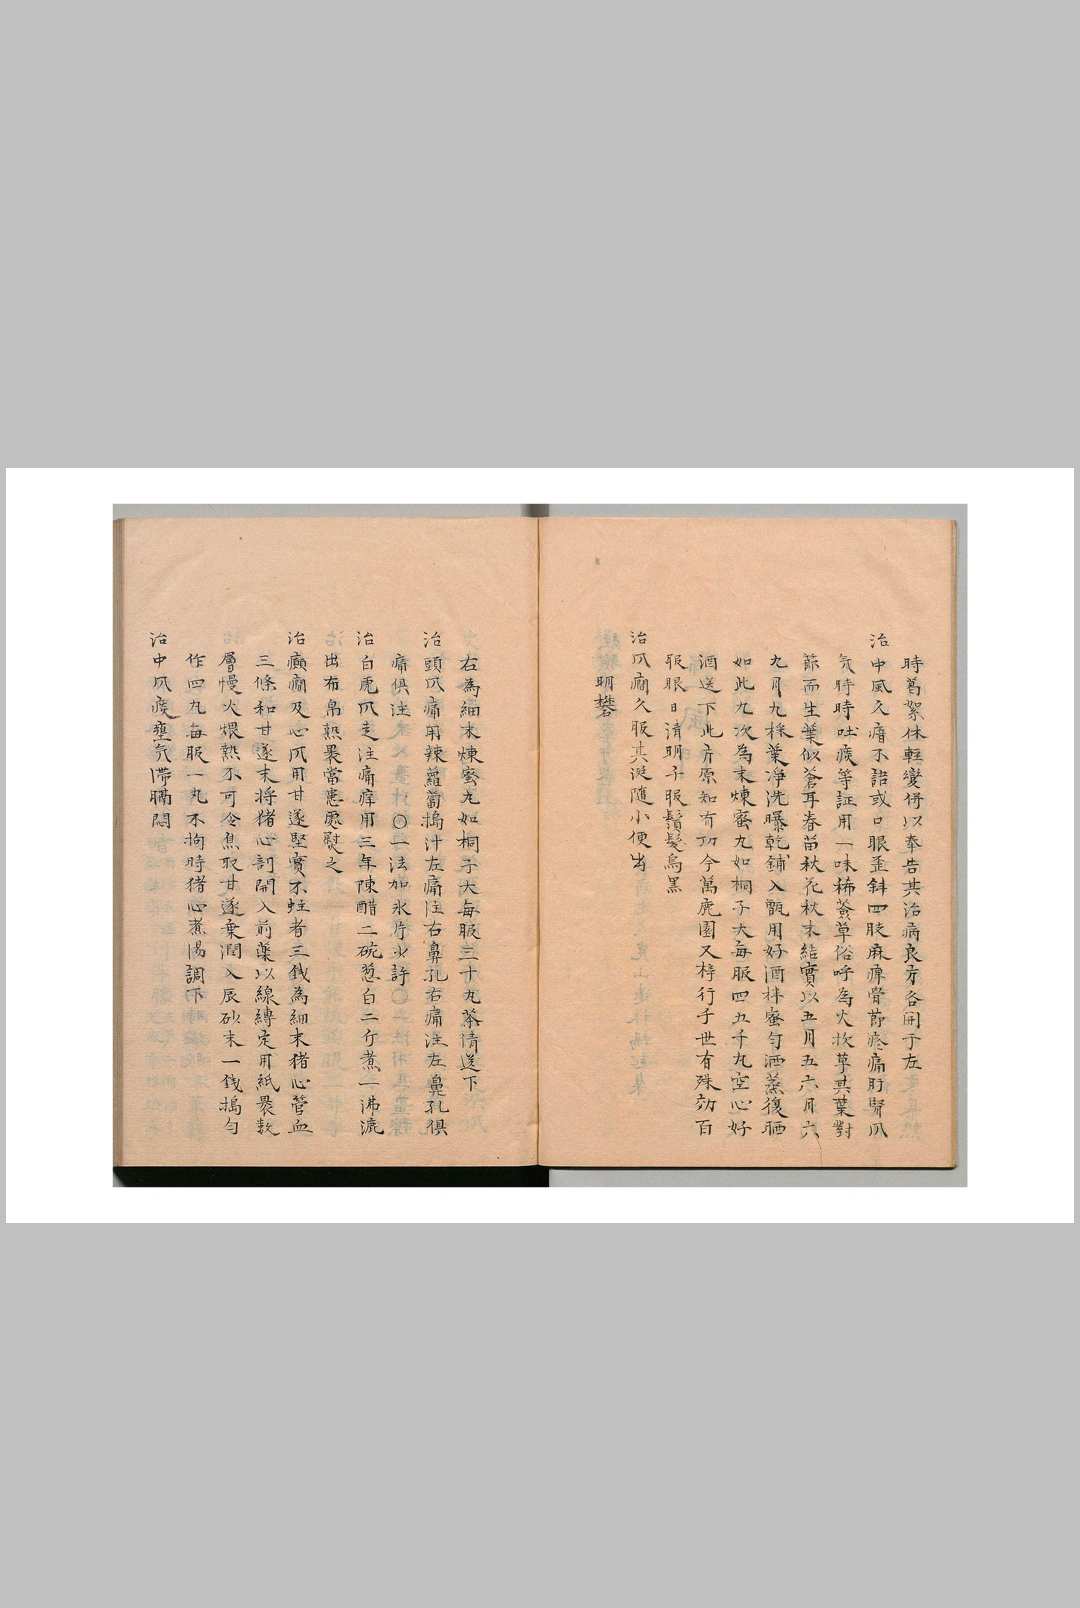 時葛絮休輕變併以奉告其治病良方各開于左
治中風久瘖不語或口眼歪斜四肢麻痺骨節疼痛肝腎风
気時時吐痰等証用一味稀薟草俗呼為火枚草其葉對
節而生葉似蒼耳春苗秋花秋末結實以五月五六月六
九月九採葉淨洗曝乾鋪入甑用好酒拌蜜勻洒蒸復晒
如此九次為末煉蜜丸如桐子大每服四五十丸空心好
酒送下此方原知有功今萬鹿園又梓行于世有殊効百
服眼目清明千服鬚髮烏黑
治风癎久服其涎隨小便出
明礬
右為細末煉蜜丸如桐子大每服三十丸茶情送下
治頭风痛用辣蘿蔔搗汁左痛注右鼻孔右痛注左鼻孔俱
痛俱注〇一法加氷片少許
治白虎风走注痛痒用三年陳醋二碗葱白二斤煮一沸漉
出布帛熱裹當患處熨之
治癲癎及心风用甘遂堅實不蛀者三錢為細末猪心管血
三條和甘遂末将猪心剖開入前藥以線縛定用紙裹数
層慢火煨熟不可令焦取甘遂乗潤入辰砂末一錢搗勻
作四丸每服一丸不拘時猪心煮湯調下
治中风痰壅気滞膈悶